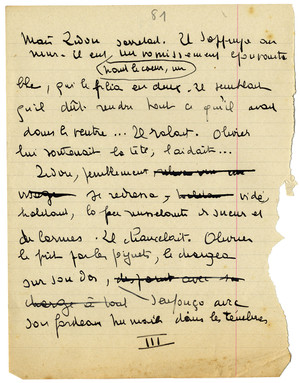 81
Mais Zidou s'arrêtait. Il s'appuya au
mur. Il eut un vomissement épouvanta
haut le cœur, un
ble, qui le plia en deux. Il semblait
qu'il dût rendre tout ce qu'il avait
dans le ventre... Il râlait. Olivier
lui soutenait la tête, l'aidait...
Zidou, péniblement
se redressa, vidé,
la face ruisselante de sueur et
de larmes. Il chancelait. Olivier
le prit par les poignets, le chargea
sur son dos,
s'enfonça avec
son fardeau humain dans les ténèbres
III